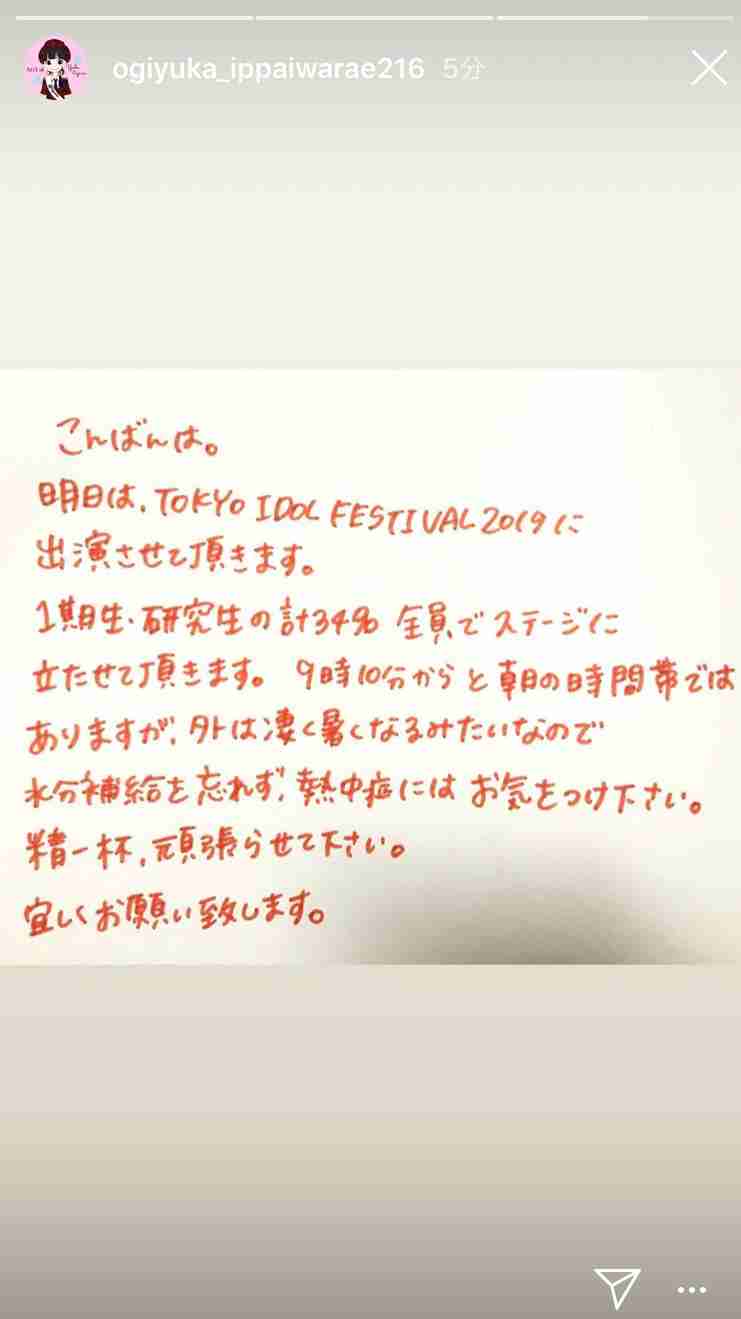 ogiyuka_ippaiwarae216 5分
こんばんは。
明日は、TOKYO IDOL FESTIVAL 2019に
出演させて頂きます。
1期生・研究生の計34名 全員でステージに
立たせて頂きます。 9時10分からと朝の時間帯では
ありますが、外は凄く暑くなるみたいなので
水分補給を忘れず、熱中症にはお気をつけ下さい。
精一杯、頑張らせて下さい。
宜しくお願い致します。